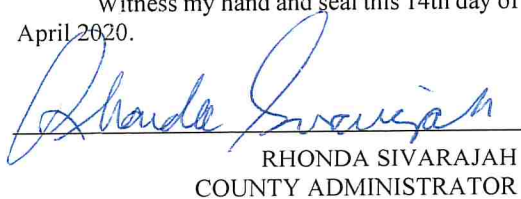 Witness my hand and seal this 14th day of
April 2020.
Rhonda Sivarajah
RHONDA SIVARAJAH
COUNTY ADMINISTRATOR